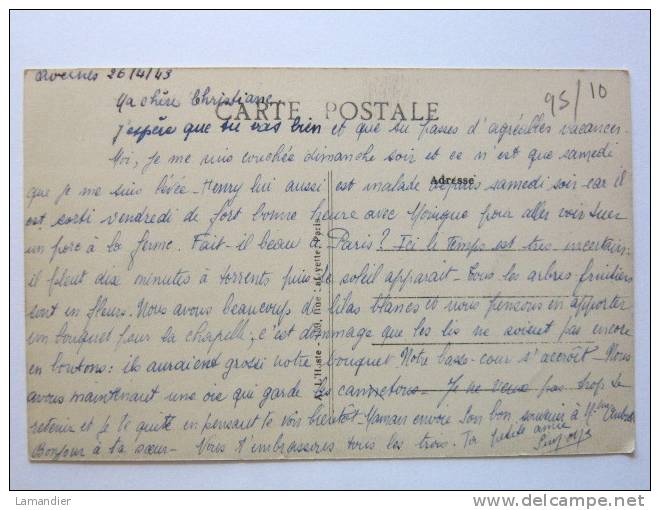 Avernes 26/4/43
95/10
Ma chère Christiane
CARTE POSTALE
J'espère que tu vas bien et que tu passes d'agréables vacances.
Moi, je me suis couchée dimanche soir et ce n'est que samedi
Adresse
que je me suis levée - Henry lui aussi est malade depuis samedi soir car il
est sorti vendredi de fort bonne heure avec Monique pour aller voir tuer
un porc à la ferme. Fait-il beau à Paris? Ici le temps est très incertain:
il pleut dix minutes à torrents puis le soleil apparait - Tous les arbres fruitiers
sont en fleurs. Nous avons beaucoup de lilas blancs et nous pensons en apporter
un bouquet pour la chapelle; c'est dommage que les lis ne soient pas encore
en boutons: ils auraient grossi notre bouquet. Notre basse-cour s'accroît - Nous
avons maintenant une oie qui garde les cannetons - Je ne veux pas trop te
retenir et je te quitte en pensant te voir bientôt - Maman envoie son bon souvenir à
Bonjour à ta sœur - Nous t'embrassons tous les trois. Ta petite amie
Lamandier
delcampe.net